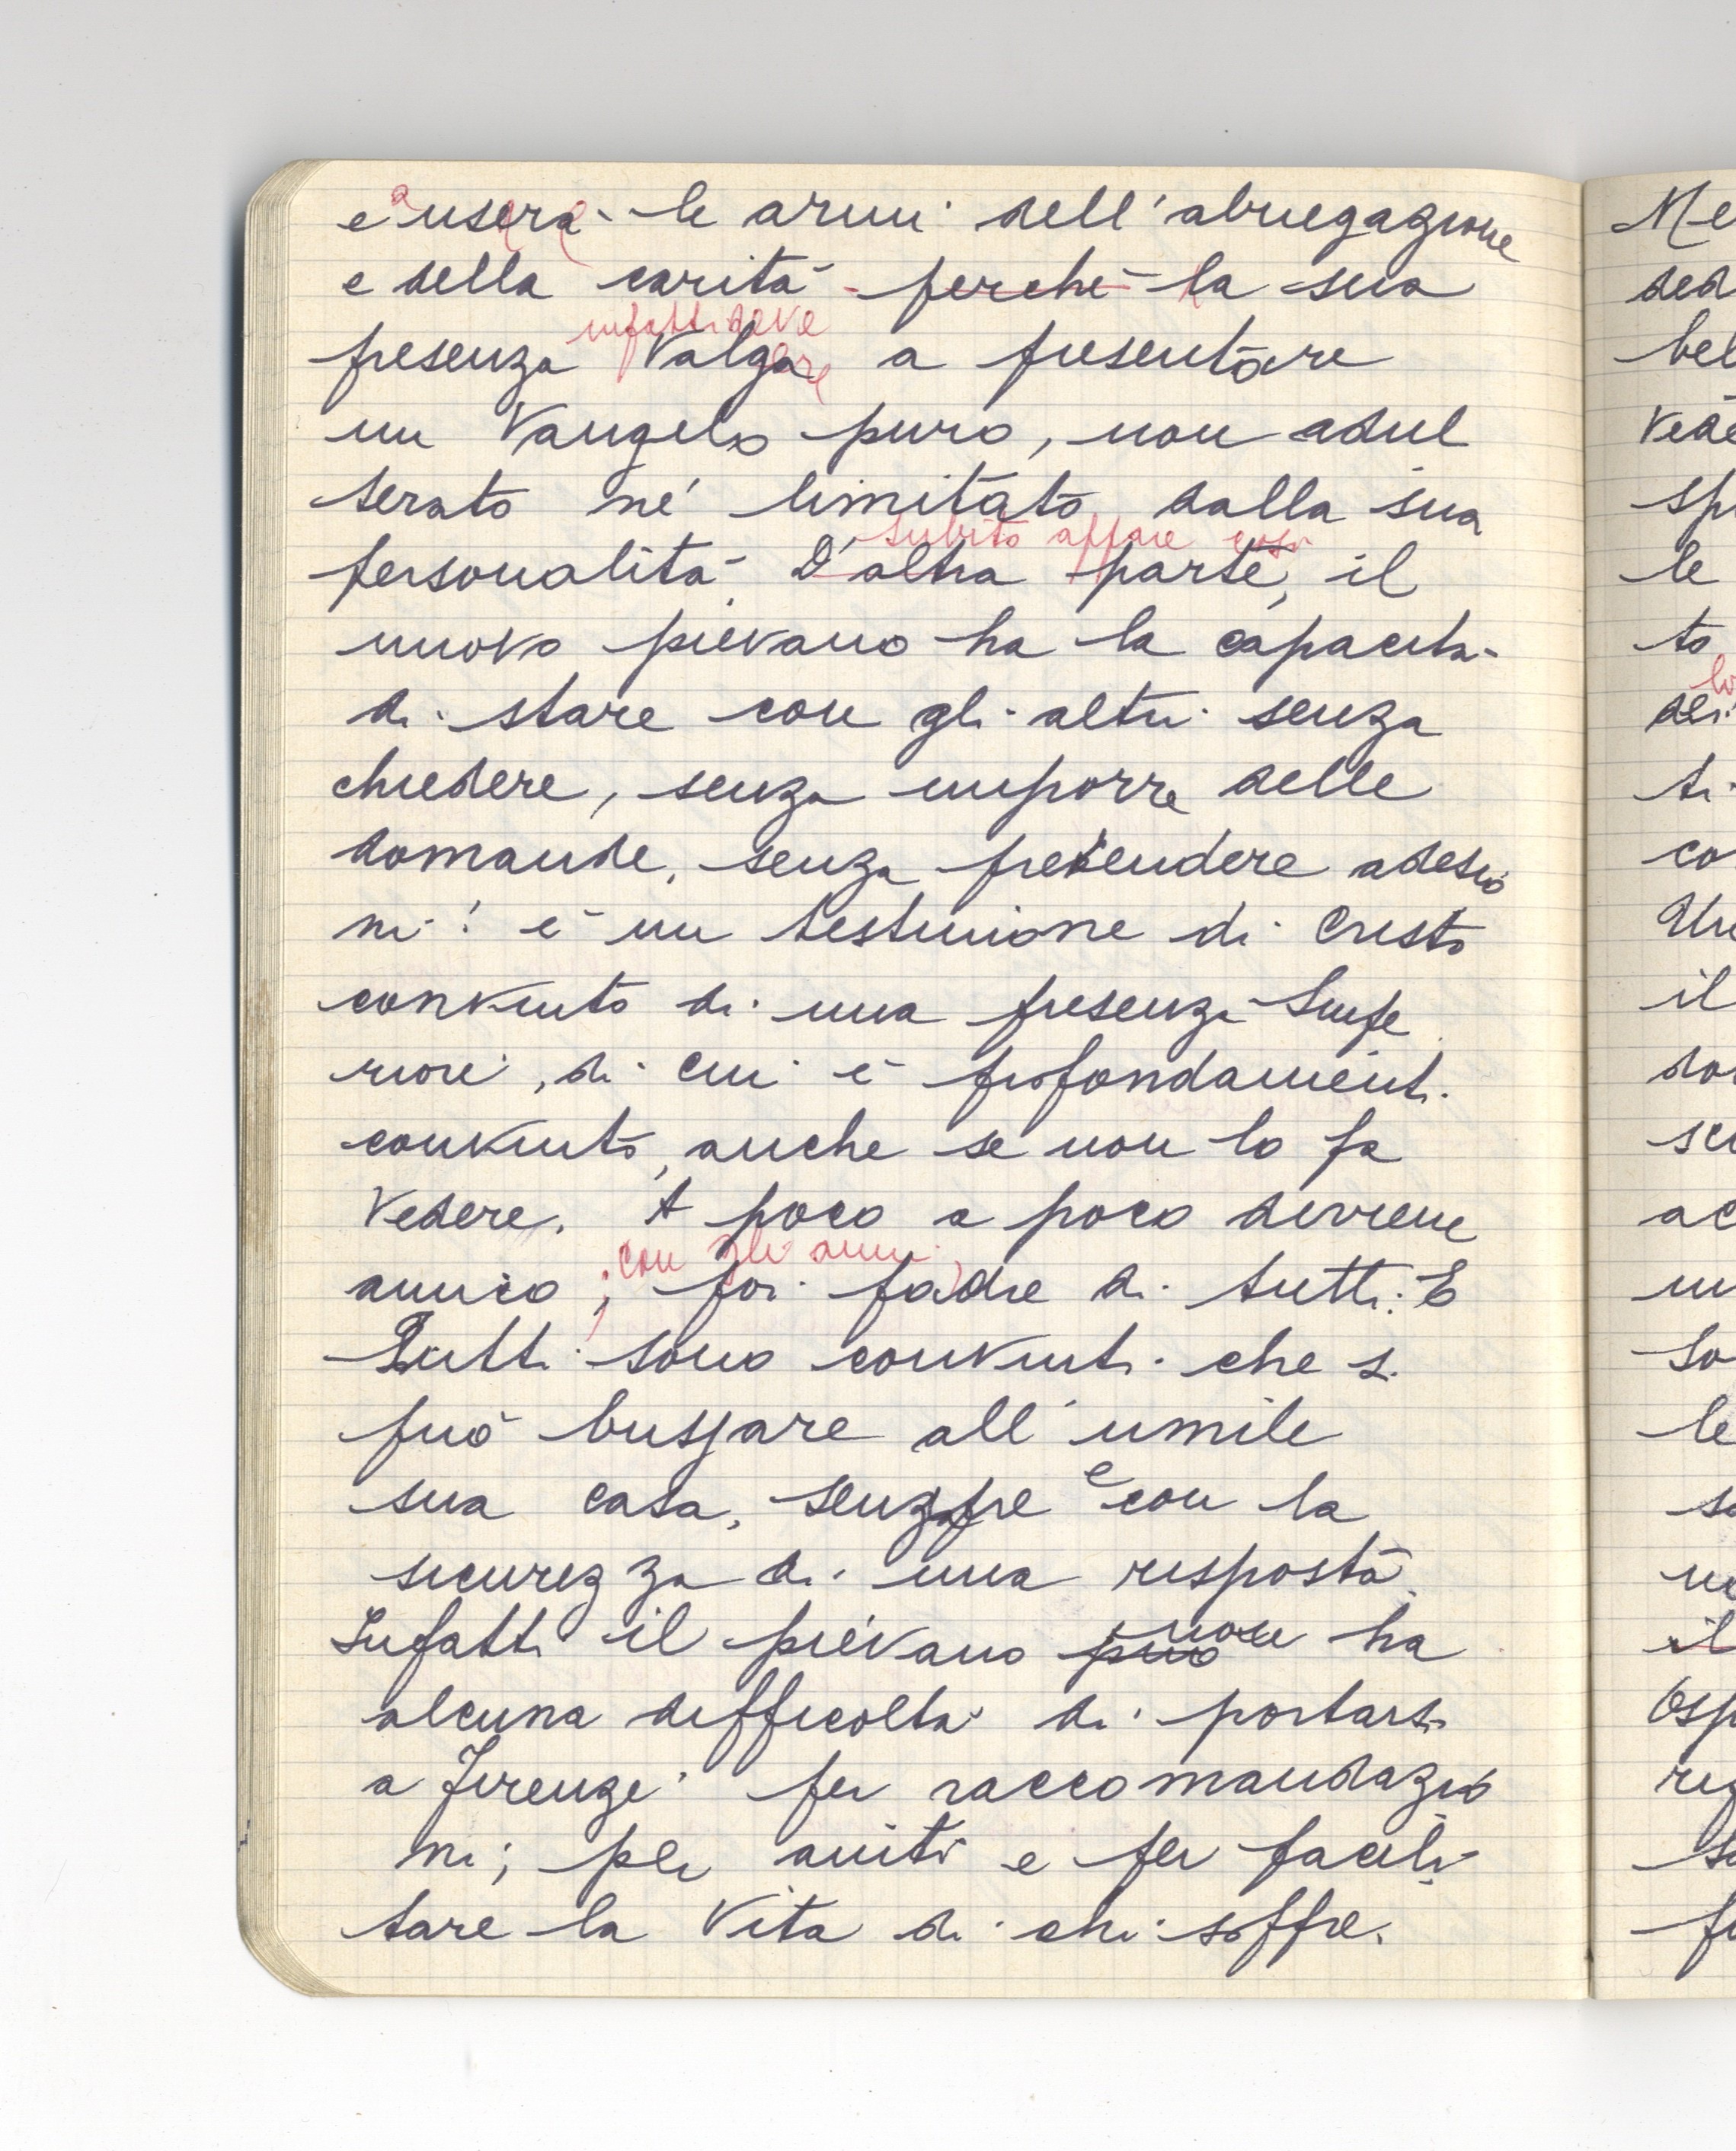 e userà le armi dell'abnegazione
e della carità perché la sua
infatti deve
presenza valga a presentare
un Vangelo puro, non adul
terato né limitato dalla sua
subito appare così
personalità. D'altra parte, il
nuovo pievano ha la capacità
di stare con gli altri senza
chiedere, senza imporre delle
domande, senza pretendere adesio
ni: è un testimone di Cristo
convinto di una presenza Supe
riore, di cui è profondamente
convinto, anche se non lo fa
vedere. A poco a poco diviene
con gli anni
amico; poi padre di tutti. E
Tutti sono convinti che si
può bussare all'umile
sua casa, sempre e con la
sicurezza di una risposta.
Infatti il pievano può non ha
alcuna difficoltà di portarsi
a Firenze per raccomandazio
ni; per aiuti e per facili-
tare la vita di chi soffre.
Me
ded
bel
le
to
ti
co
il
sci
ac
so
le
il
Osp